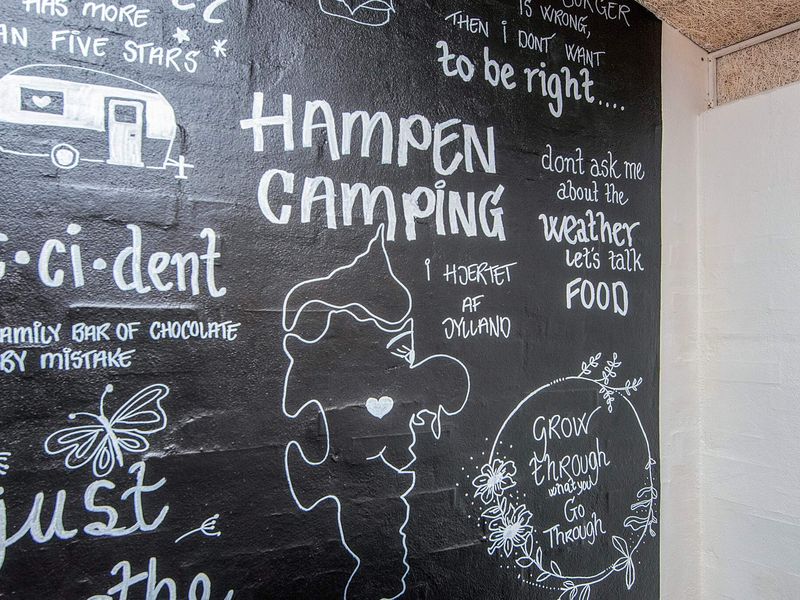 HAS MORE
AN FIVE STARS
BURGER
IS WRONG,
THEN I DON'T WANT
to be right....
HAMPEN
CAMPING
I HJERTET
AF
JYLLAND
dont ask me
about the
weather
Let's talk
FOOD
c·ci·dent
FAMILY BAR OF CHOCOLATE
BY MISTAKE
just
the
GROW
through
what you
Go
Through